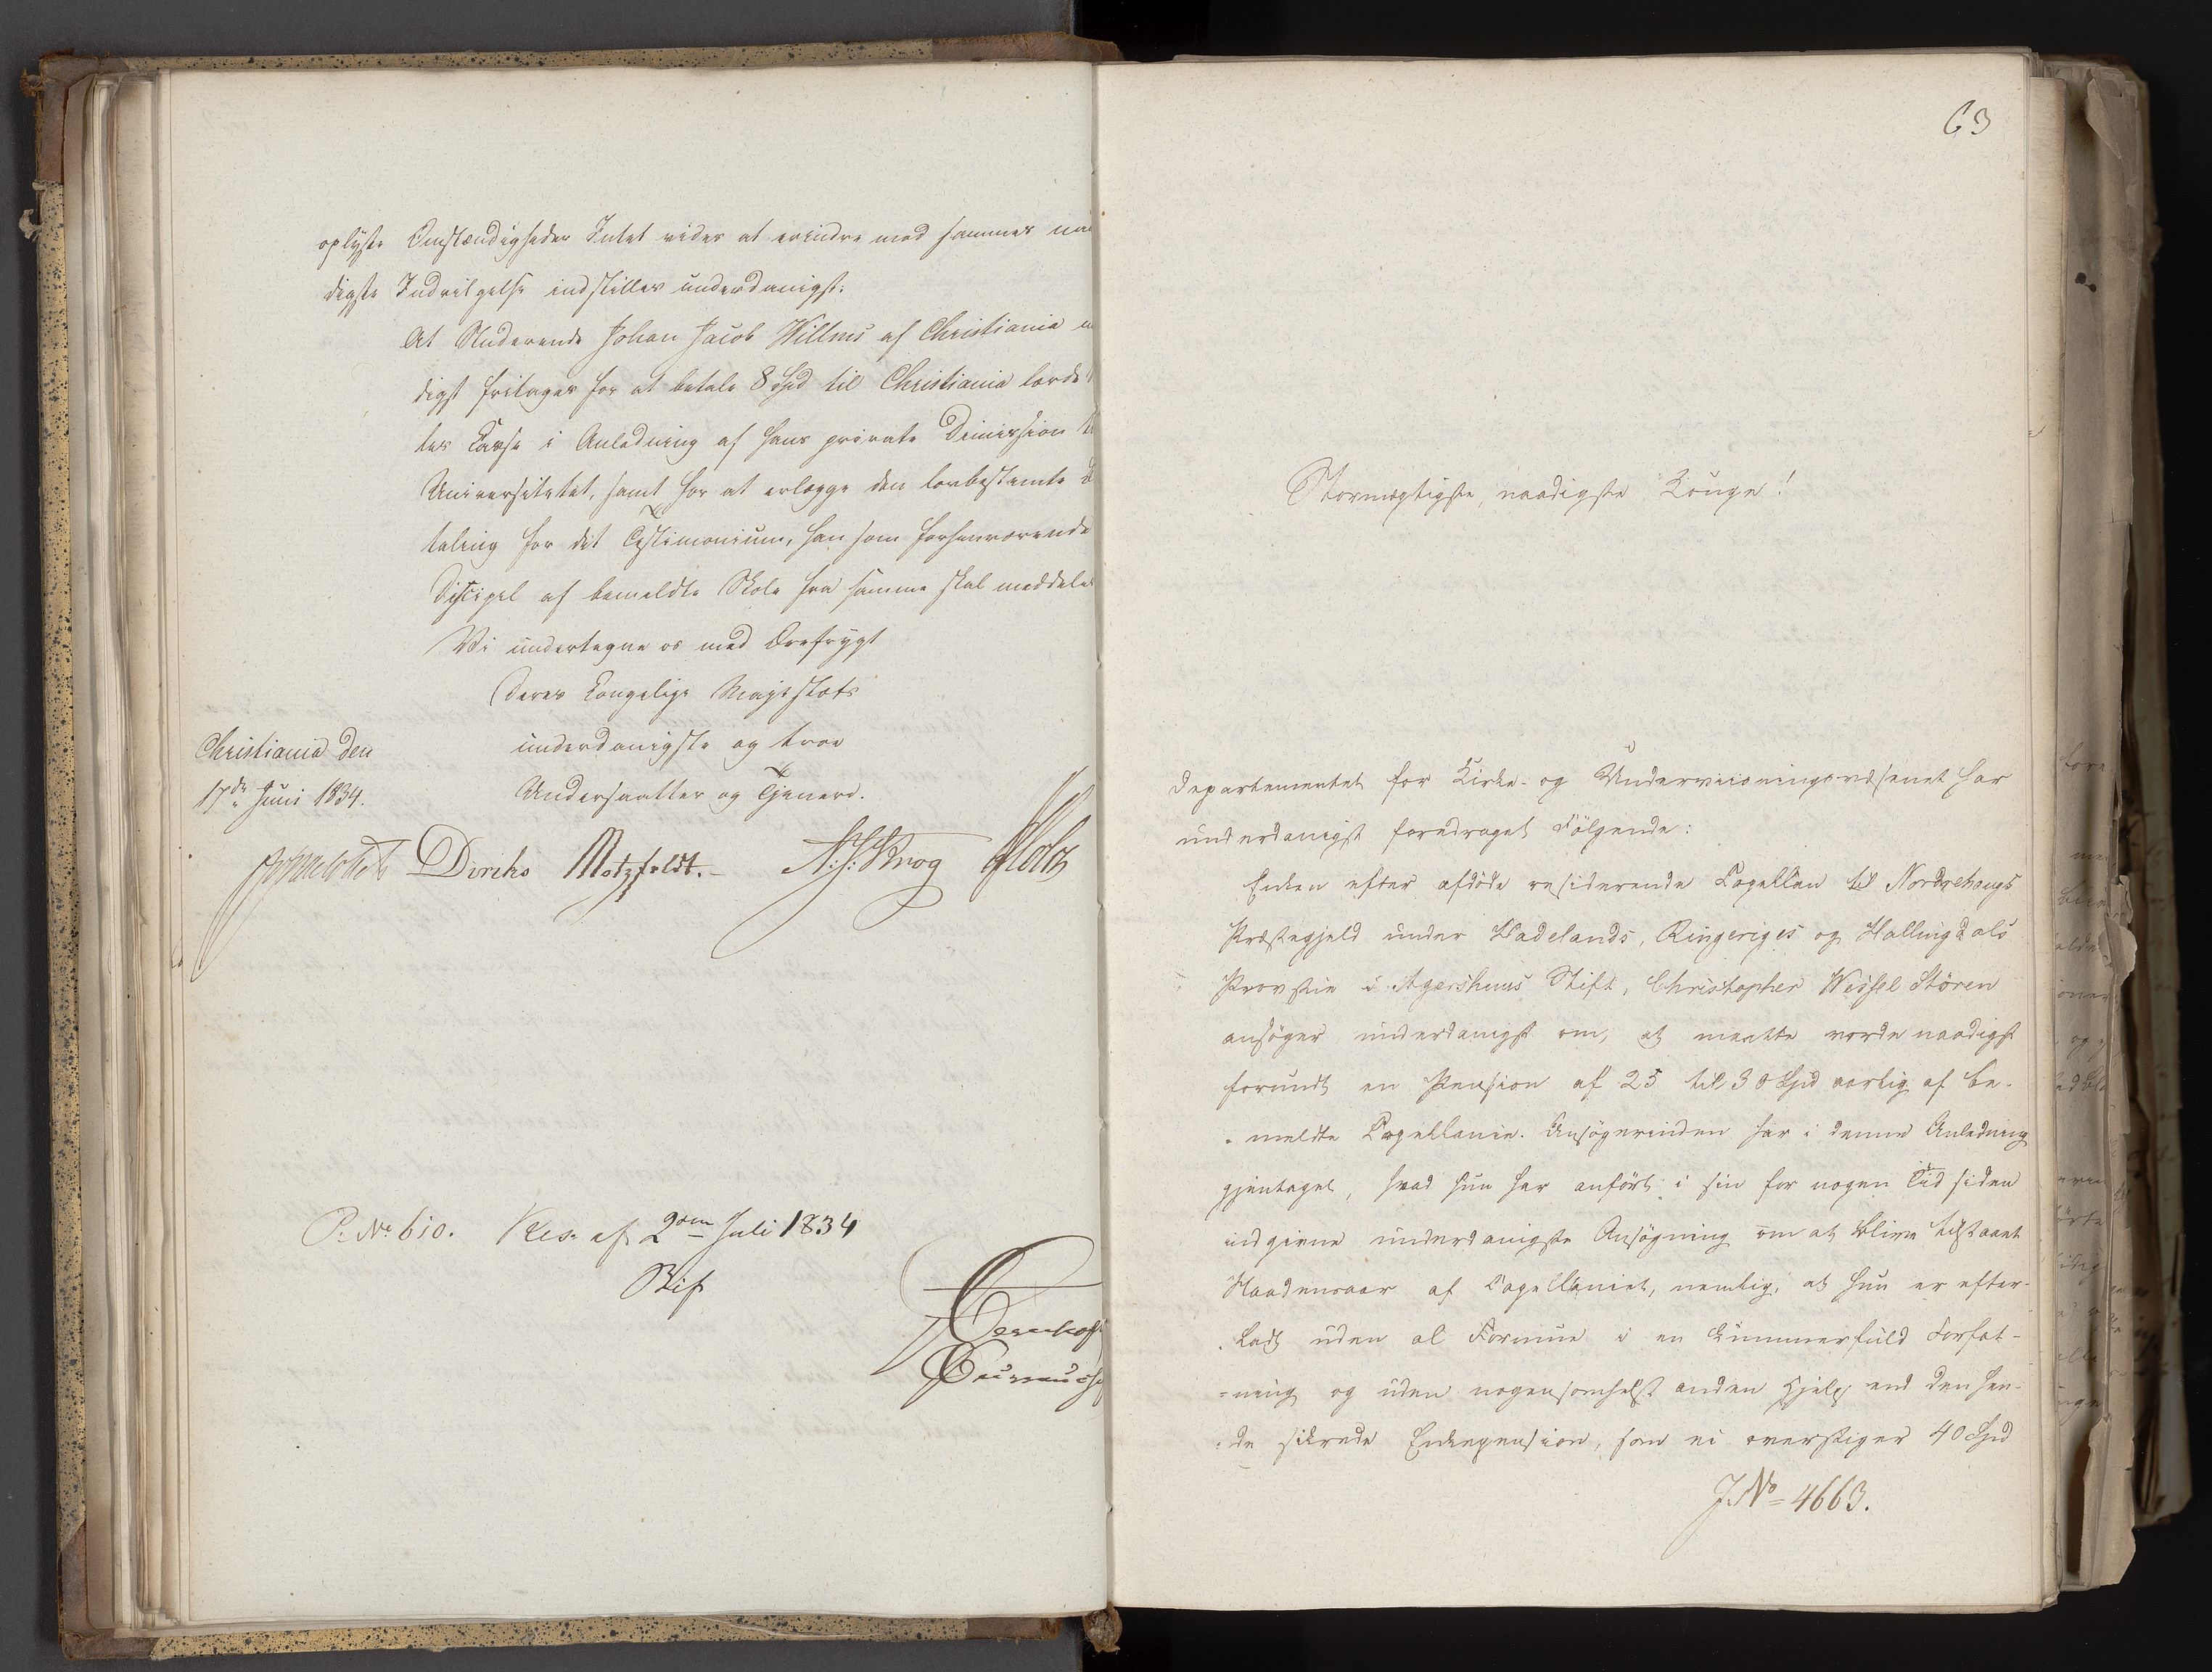 oplyste Omstændigheder Intet vides at erindre mod sammes naa
digste Indvilgelse indstilles underdanigst:
At Studerende Johan Jacob Willms af Christiania
digst fritages for at betale 8 Spd til Christiania lærde
les Kasse i Anledning af hans private Dimission
Universitetet, samt for at erlægge den lovbestemte
taling for det Testimonium, han som forhenværende
Discipel af bemeldte Skole fra samme skal meddeles
Vi undertegne os med Ærefrygt
Deres Kongelige Majestæts
underdanigste og troe
Undersaatter og Tjenere.
Christiania den
17de Juni 1834.
Diriks Motzfeldt. N:J:Krog Holst
P. No 610. Res. af 2den Juli 1834
Bif
63
Stormægtigste, naadigste Konge!
Departementet for Kirke- og Underviisningsvæsenet har
underdanigst foredraget Følgende:
Enken efter afdøde residerende Capellan til Nordrehougs
Præstegjeld under Hadelands, Ringeriges og Hallingdals
Provstie i Agershuus Stift, Christopher Wessel Støren
ansøger underdanigst om, at maatte vorde naadigst
forundt en Pension af 25 til 30 Spd aarlig af be-
meldte Capellanie. Ansøgerinden har i denne Anledning
gjentaget, hvad hun har anført i sin for nogen Tid siden
indgivne underdanigste Ansøgning om at blive tilstaaet
Naadensaar af Capellaniet, nemlig, at hun er efter-
ladt uden al Formue i en kummerfuld Forfat-
=ning og uden nogensomhelst anden Hjelp end den hen-
de sikrede Enkepension, som ei overstiger 40 Spd
J. No = 4663.